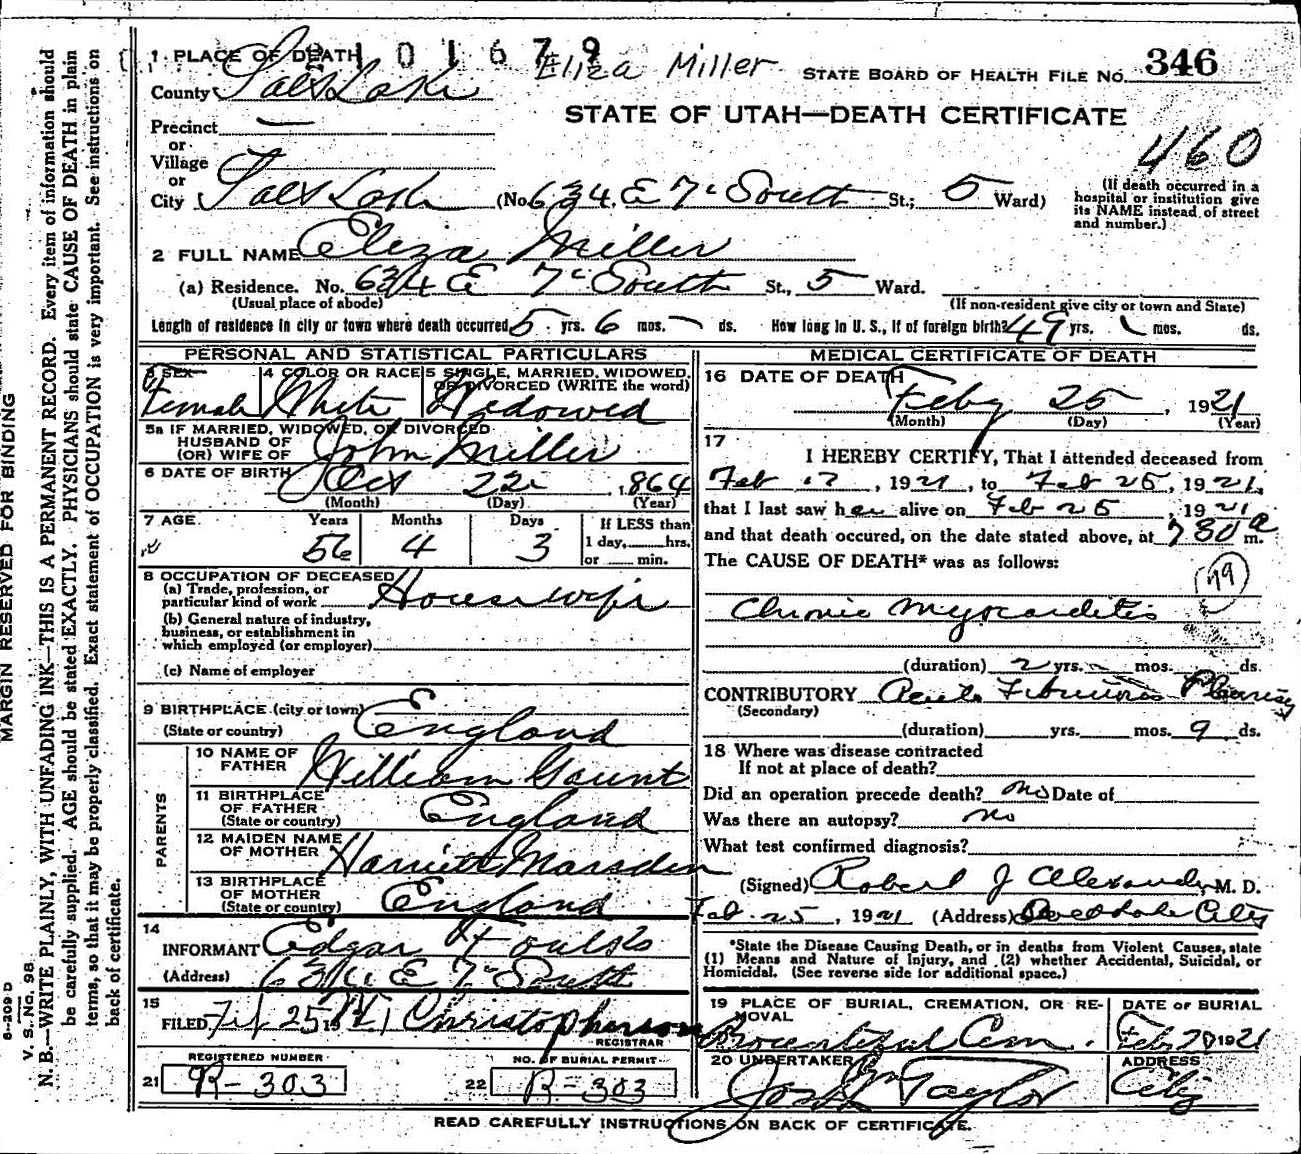 2101679 Eliza Miller
1 PLACE OF DEATH
STATE BOARD OF HEALTH FILE NO. 346
County Salt Lake
STATE OF UTAH—DEATH CERTIFICATE
460
Precinct —
or
Village
or
City Salt Lake (No. 634 E 7th South St.; 5 Ward)
(If death occurred in a hospital or institution give its NAME instead of street and number.)
2 FULL NAME Eliza Miller
(a) Residence. No. 634 E 7th South St., 5 Ward.
(Usual place of abode) (If non-resident give city or town and State)
Length of residence in city or town where death occurred 5 yrs. 6 mos. — ds. How long in U. S., if of foreign birth? 49 yrs. mos. ds.
PERSONAL AND STATISTICAL PARTICULARS
3 SEX Female
4 COLOR OR RACE White
5 SINGLE, MARRIED, WIDOWED, OR DIVORCED (WRITE the word) Widowed
5a IF MARRIED, WIDOWED, OR DIVORCED
HUSBAND OF
(OR) WIFE OF John Miller
6 DATE OF BIRTH Oct 22 1864
(Month) (Day) (Year)
7 AGE Years 56 Months 4 Days 3
If LESS than
1 day, hrs.
or min.
8 OCCUPATION OF DECEASED
(a) Trade, profession, or
particular kind of work Housewife
(b) General nature of industry,
business, or establishment in
which employed (or employer)
(c) Name of employer
9 BIRTHPLACE (city or town)
(State or country) England
PARENTS
10 NAME OF
FATHER William Gaunt
11 BIRTHPLACE
OF FATHER
(State or country) England
12 MAIDEN NAME
OF MOTHER Harriett Marsden
13 BIRTHPLACE
OF MOTHER
(State or country) England
14
INFORMANT Edgar H Foulds
(Address) 634 E 7th South
15
FILED Feb 25 1921 Christopherson
REGISTRAR
REGISTERED NUMBER
21 R-303
NO. OF BURIAL PERMIT
22 R-303
MEDICAL CERTIFICATE OF DEATH
16 DATE OF DEATH
Feby 25, 1921
(Month) (Day) (Year)
17
I HEREBY CERTIFY, That I attended deceased from
Feb 17, 1921, to Feb 25, 1921,
that I last saw her alive on Feb 25, 1921
and that death occured, on the date stated above, at 730 a m.
The CAUSE OF DEATH* was as follows:
79
Chronic Myocarditis
(duration) 2 yrs. mos. ds.
CONTRIBUTORY Acute Fibrinous Pleurisy
(Secondary)
(duration) yrs. mos. 9 ds.
18 Where was disease contracted
If not at place of death?
Did an operation precede death? no Date of
Was there an autopsy? no
What test confirmed diagnosis?
(Signed) Robert J Alexander, M. D.
Feb. 25, 1921 (Address) Salt Lake City
*State the Disease Causing Death, or in deaths from Violent Causes, state
(1) Means and Nature of Injury, and (2) whether Accidental, Suicidal, or
Homicidal. (See reverse side for additional space.)
19 PLACE OF BURIAL, CREMATION, OR REMOVAL
Bountiful Cem.
DATE OF BURIAL
Feb 1921
20 UNDERTAKER
Jos Wm Taylor
ADDRESS
City
READ CAREFULLY INSTRUCTIONS ON BACK OF CERTIFICATE.
MARGIN RESERVED FOR BINDING
V. S. No. 98
6-209 D
N. B.—WRITE PLAINLY, WITH UNFADING INK—THIS IS A PERMANENT RECORD. Every item of information should
be carefully supplied. AGE should be stated EXACTLY. PHYSICIANS should state CAUSE OF DEATH in plain
terms, so that it may be properly classified. Exact statement of OCCUPATION is very important. See instructions on
back of certificate.